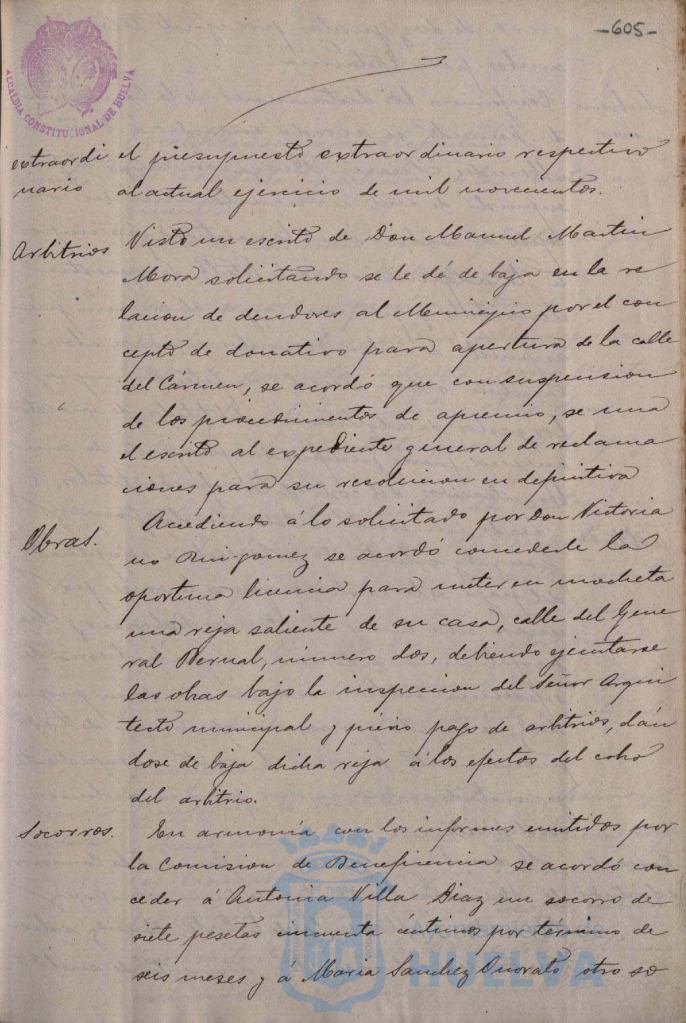 -605-
ALCALDIA CONSTITUCIONAL DE HUELVA
extraordi el presupuesto extraordinario respectivo
nario al actual ejercicio de mil novecientos.
Arbitrios Visto un escrito de Don Manuel Martin
Mora solicitando se le dé de baja en la re
lacion de deudores al Municipio por el con
cepto de donativo para apertura de la calle
del Cármen, se acordó que con suspension
de los procedimientos de apremio, se una
el escrito al expediente general de reclama
ciones para su resolucion en definitiva
Obras. Accediendo á lo solicitado por Don Victoria
no Ruigomez se acordó concederle la
oportuna licencia para meter en mocheta
una reja saliente de su casa, calle del Gene
ral Bernal, número dos, debiendo ejecutarse
las obras bajo la inspeccion del Señor Arqui
tecto municipal y prévio pago de arbitrios, dán
dose de baja dicha reja á los efectos del cobro
del arbitrio.
Socorros. En armonía con los informes emitidos por
la Comision de Beneficencia se acordó con
ceder á Antonia Villa Diaz un socorro de
siete pesetas cincuenta céntimos por término de
seis meses y á Maria Sanchez Onorato otro so
HUELVA